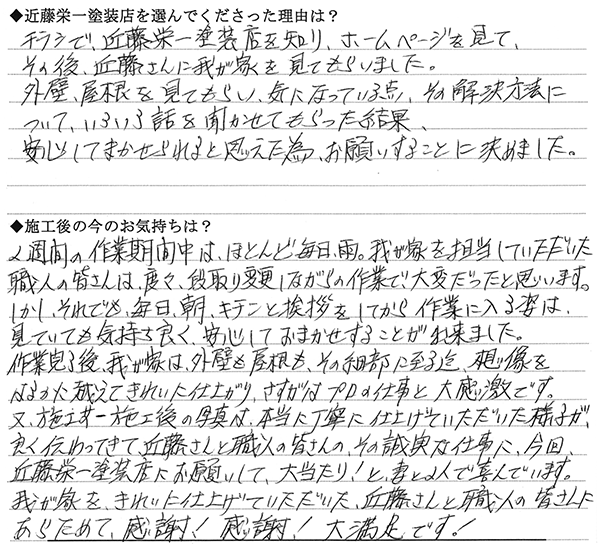 ◆近藤栄一塗装店を選んでくださった理由は？
チラシで、近藤栄一塗装店を知り、ホームページを見て、
その後、近藤さんに我が家を見てもらいました。
外壁、屋根を見てもらい、気になっている点、その解決方法に
ついて、いろいろ話を聞かせてもらった結果、
安心してまかせられると思えた為、お願いすることに決めました。
◆施工後の今のお気持ちは？
2週間の作業期間中は、ほとんど毎日、雨。我が家を担当していただいた
職人の皆さんは、度々、段取り変更しながらの作業で大変だったと思います。
しかし、それでも、毎日、朝、キチンと挨拶をしてから作業に入る姿は、
見ていても気持ち良く、安心しておまかせすることが出来ました。
作業完了後、我が家は、外壁も屋根も、その細部に至る迄、想像を
はるかに越えてきれいに仕上がり、さすがはプロの仕事と大感激です。
又、施工前－施工後の写真は、本当に丁寧に仕上げていただいた様子が、
良く伝わってきて、近藤さんと職人の皆さんの、その誠実な仕事に、今回
近藤栄一塗装店にお願いして、大当たり！と、妻と2人で喜んでいます。
我が家を、きれいに仕上げていただいた、近藤さんと職人の皆さんに
あらためて、感謝！感謝！大満足です！